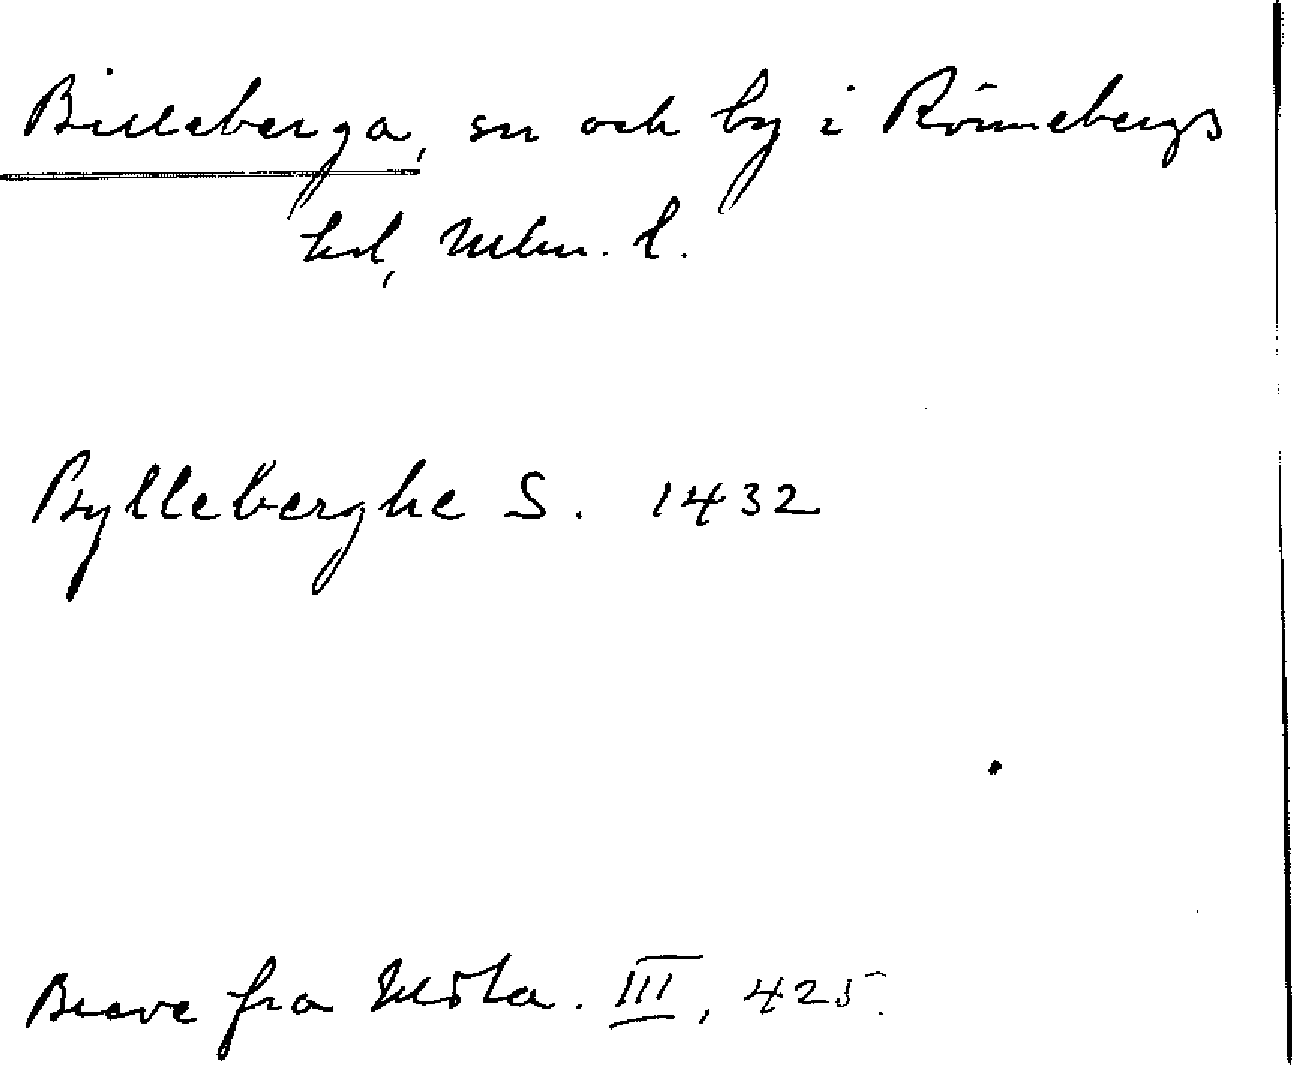 Billeberga, sn och by i Rönnebergs
hd, Mlm. l.
Bylleberghe S. 1432
Breve fra Mĺsta. III, 425.